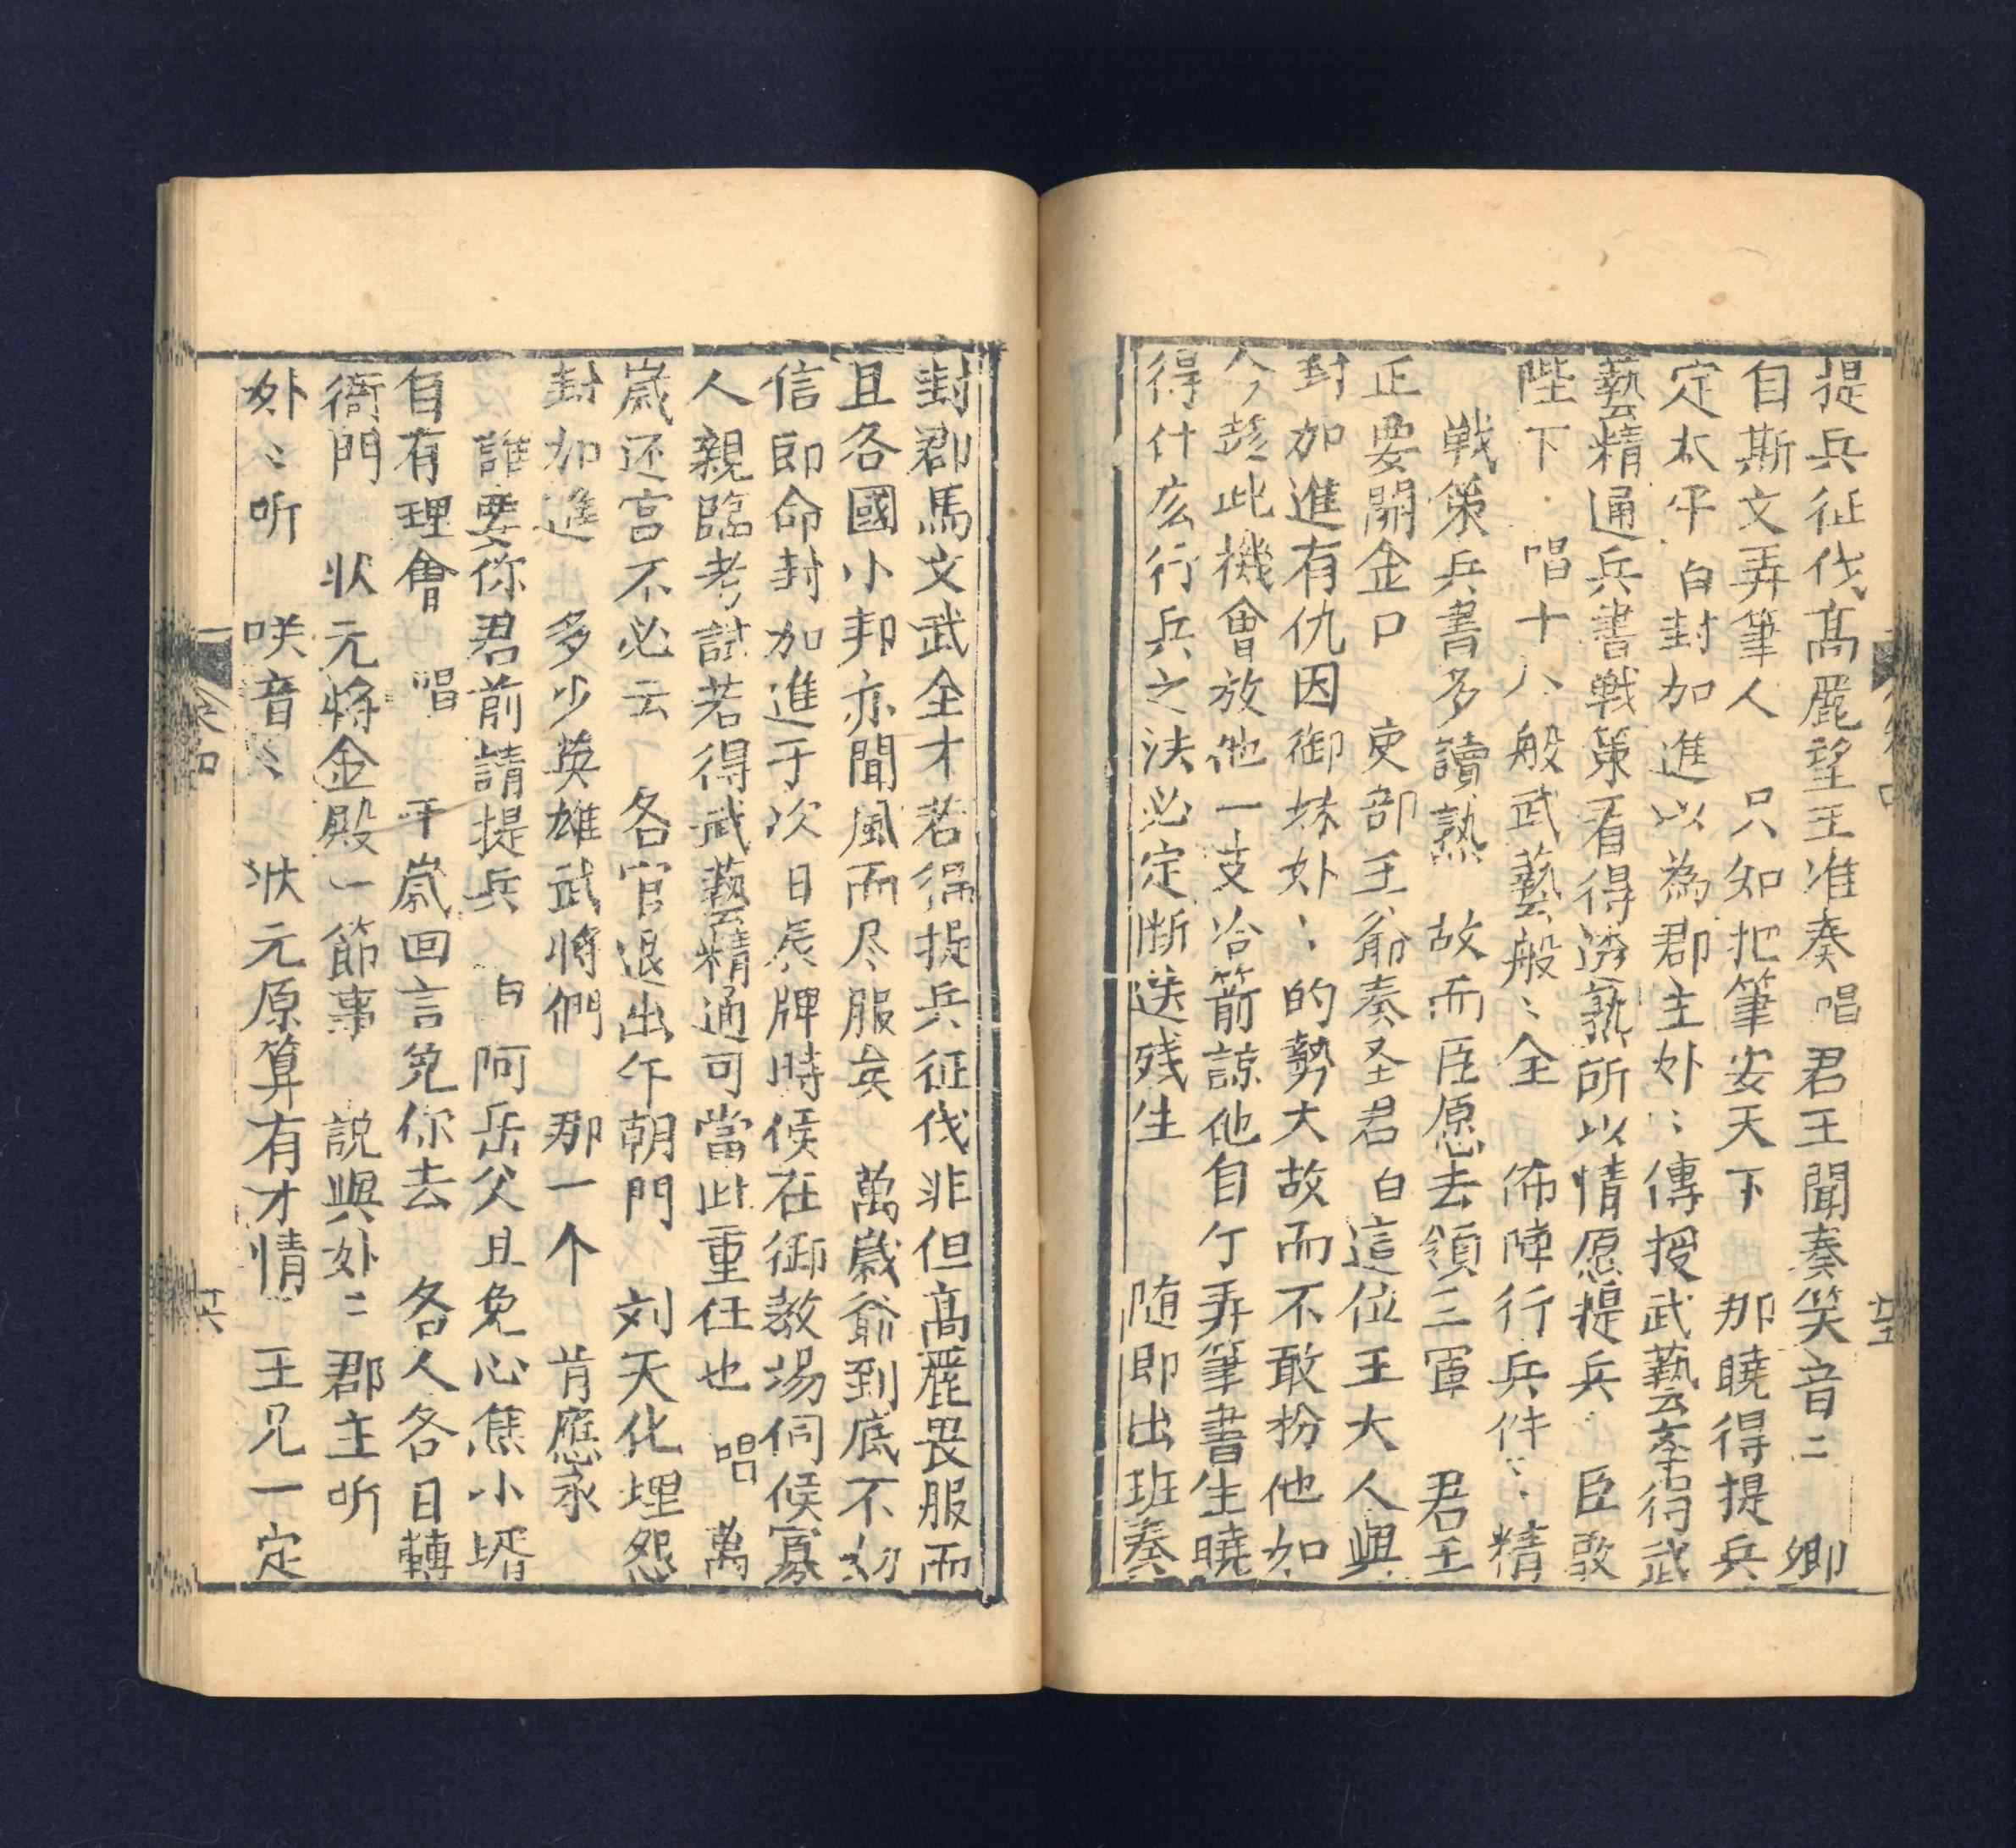 提兵征伐髙麗望王准奏 唱 君王聞奏笑音〻 卿
自斯文弄筆人 只知把筆安天下 那曉得提兵
定太平 白 封加進以為郡主外〻傳授武藝李得武
藝精通兵書戰策看得透熟所以情愿提兵 臣敢
陛下 唱 十八般武藝般〻全 佈陣行兵件〻精
戦策兵書多讀熟 故而臣愿去領三軍 君王
正要開金口 吏部王爺奏圣君 白 這位王大人與
封加進有仇因御妹外〻的勢大故而不敢扮他如
今趁此機會放他一支冷箭諒他自仃弄筆書生曉
得什庅行兵之法必定断送残生 随即出班奏
封郡馬文武全才若得提兵征伐非但髙麗畏服而
且各國小邦亦聞風而尽服矣 萬歲爺到底不幼
信即命封加進于次日辰牌時候在御教場伺候寡
人親臨考試若得武藝精通可當此重任也 唱 萬
歲还宫不必云 各官退出午朝門 刘天化埋怨
封加進 多少英雄武將們 那一个 肯應承
誰要你君前請提兵 白 阿岳父且免心焦小壻
自有理會 唱 千歲回言免你去 各人各日轉
衙門 状元將金殿一節事 説與外〻郡主听
外〻听 咲音〻 状元原算有才情 王兄一定